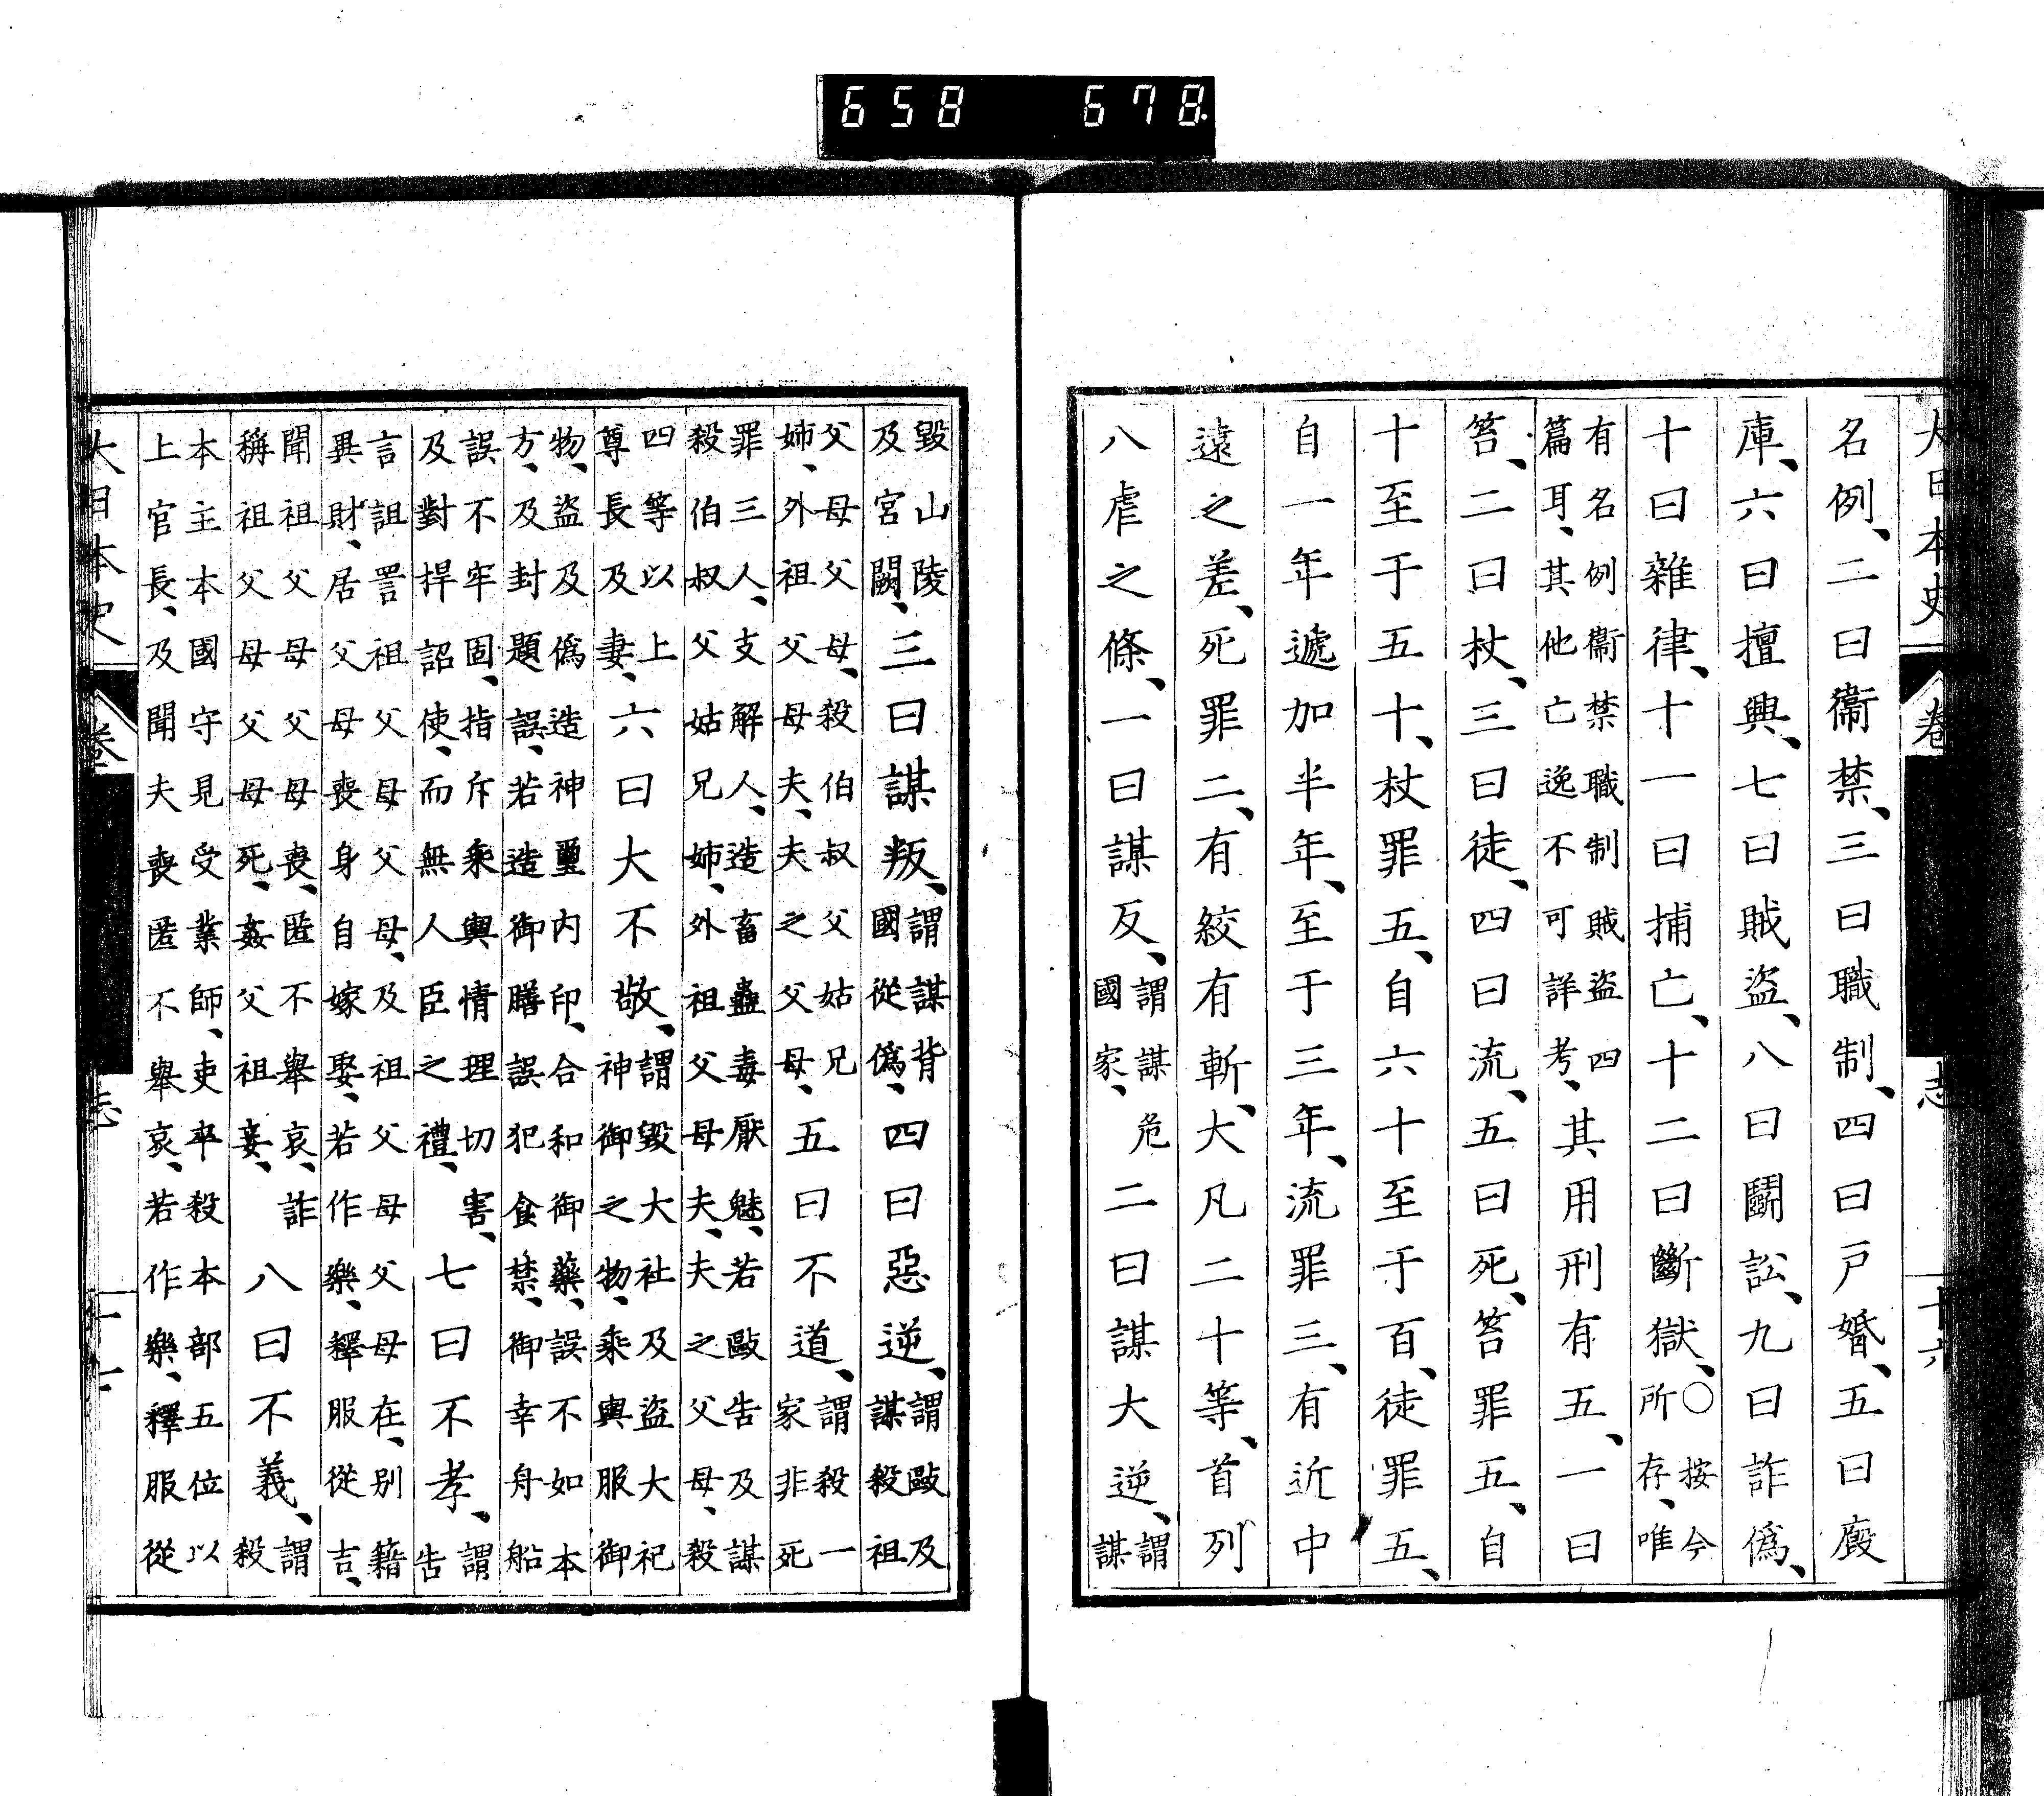 大日本史 卷 志 十六
名例、二曰衞禁、三曰職制、四曰戸婚、五曰廐
庫、六曰擅興、七曰賊盜、八曰鬪訟、九曰詐僞、
十曰雜律、十一曰捕亡、十二曰斷獄、○按今所存、唯
有名例衞禁職制賊盜四篇耳、其他亡逸不可詳考、其用刑有五、一曰
笞、二曰杖、三曰徒、四曰流、五曰死、笞罪五、自
十至于五十、杖罪五、自六十至于百、徒罪五、
自一年遞加半年、至于三年、流罪三、有近中
遠之差、死罪二、有絞有斬、大凡二十等、首列
八虐之條、一曰謀反、謂謀危國家、二曰謀大逆、謂謀
毀山陵及宮闕、三曰謀叛、謂謀背國從僞、四曰惡逆、謂毆及謀殺祖
父母父母、殺伯叔父姑兄姉、外祖父母夫、夫之父母、五曰不道、謂殺一家非死
罪三人、支解人、造畜蠱毒厭魅、若毆告及謀殺伯叔父姑兄姉、外祖父母夫、夫之父母、殺
四等以上尊長及妻、六曰大不敬、謂毀大社及盜大祀神御之物、乘輿服御
物、盜及僞造神璽内印、合和御藥、誤不如本方、及封題誤、若造御膳誤犯食禁、御幸舟船
誤不牢固、指斥乘輿情理切害、及對捍詔使、而無人臣之禮、七曰不孝、謂告
言詛詈祖父母父母、及祖父母父母在、別籍異財、居父母喪身自嫁娶、若作樂、釋服從吉、
聞祖父母父母喪、匿不舉哀、詐稱祖父母父母死、姦父祖妾、八曰不義、謂殺
本主本國守見受業師、吏卒殺本部五位以上官長、及聞夫喪匿不舉哀、若作樂、釋服從
大日本史 卷 志
658 678